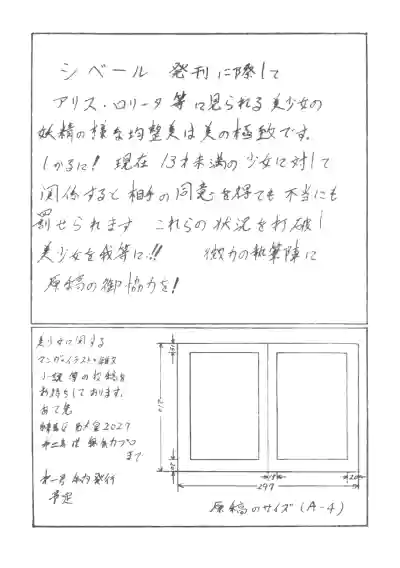 シベール 発刊に際して
アリス・ロリータ等に見られる美少女の
妖精の様な均整美は美の極致です。
しかるに! 現在 13才未満の少女に対して
関係すると相手の同意を得ても不当にも
罰せられます これらの状況を打破し
美少女を我等に!! 微力の執筆陣に
原稿の御協力を!
美少女に関する
マンガ・イラスト・雑文
小説 等の投稿を
お待ちしております。
あて先
2029
まで
第一号 年内発行
予定
297
20
原稿のサイズ(A-4)